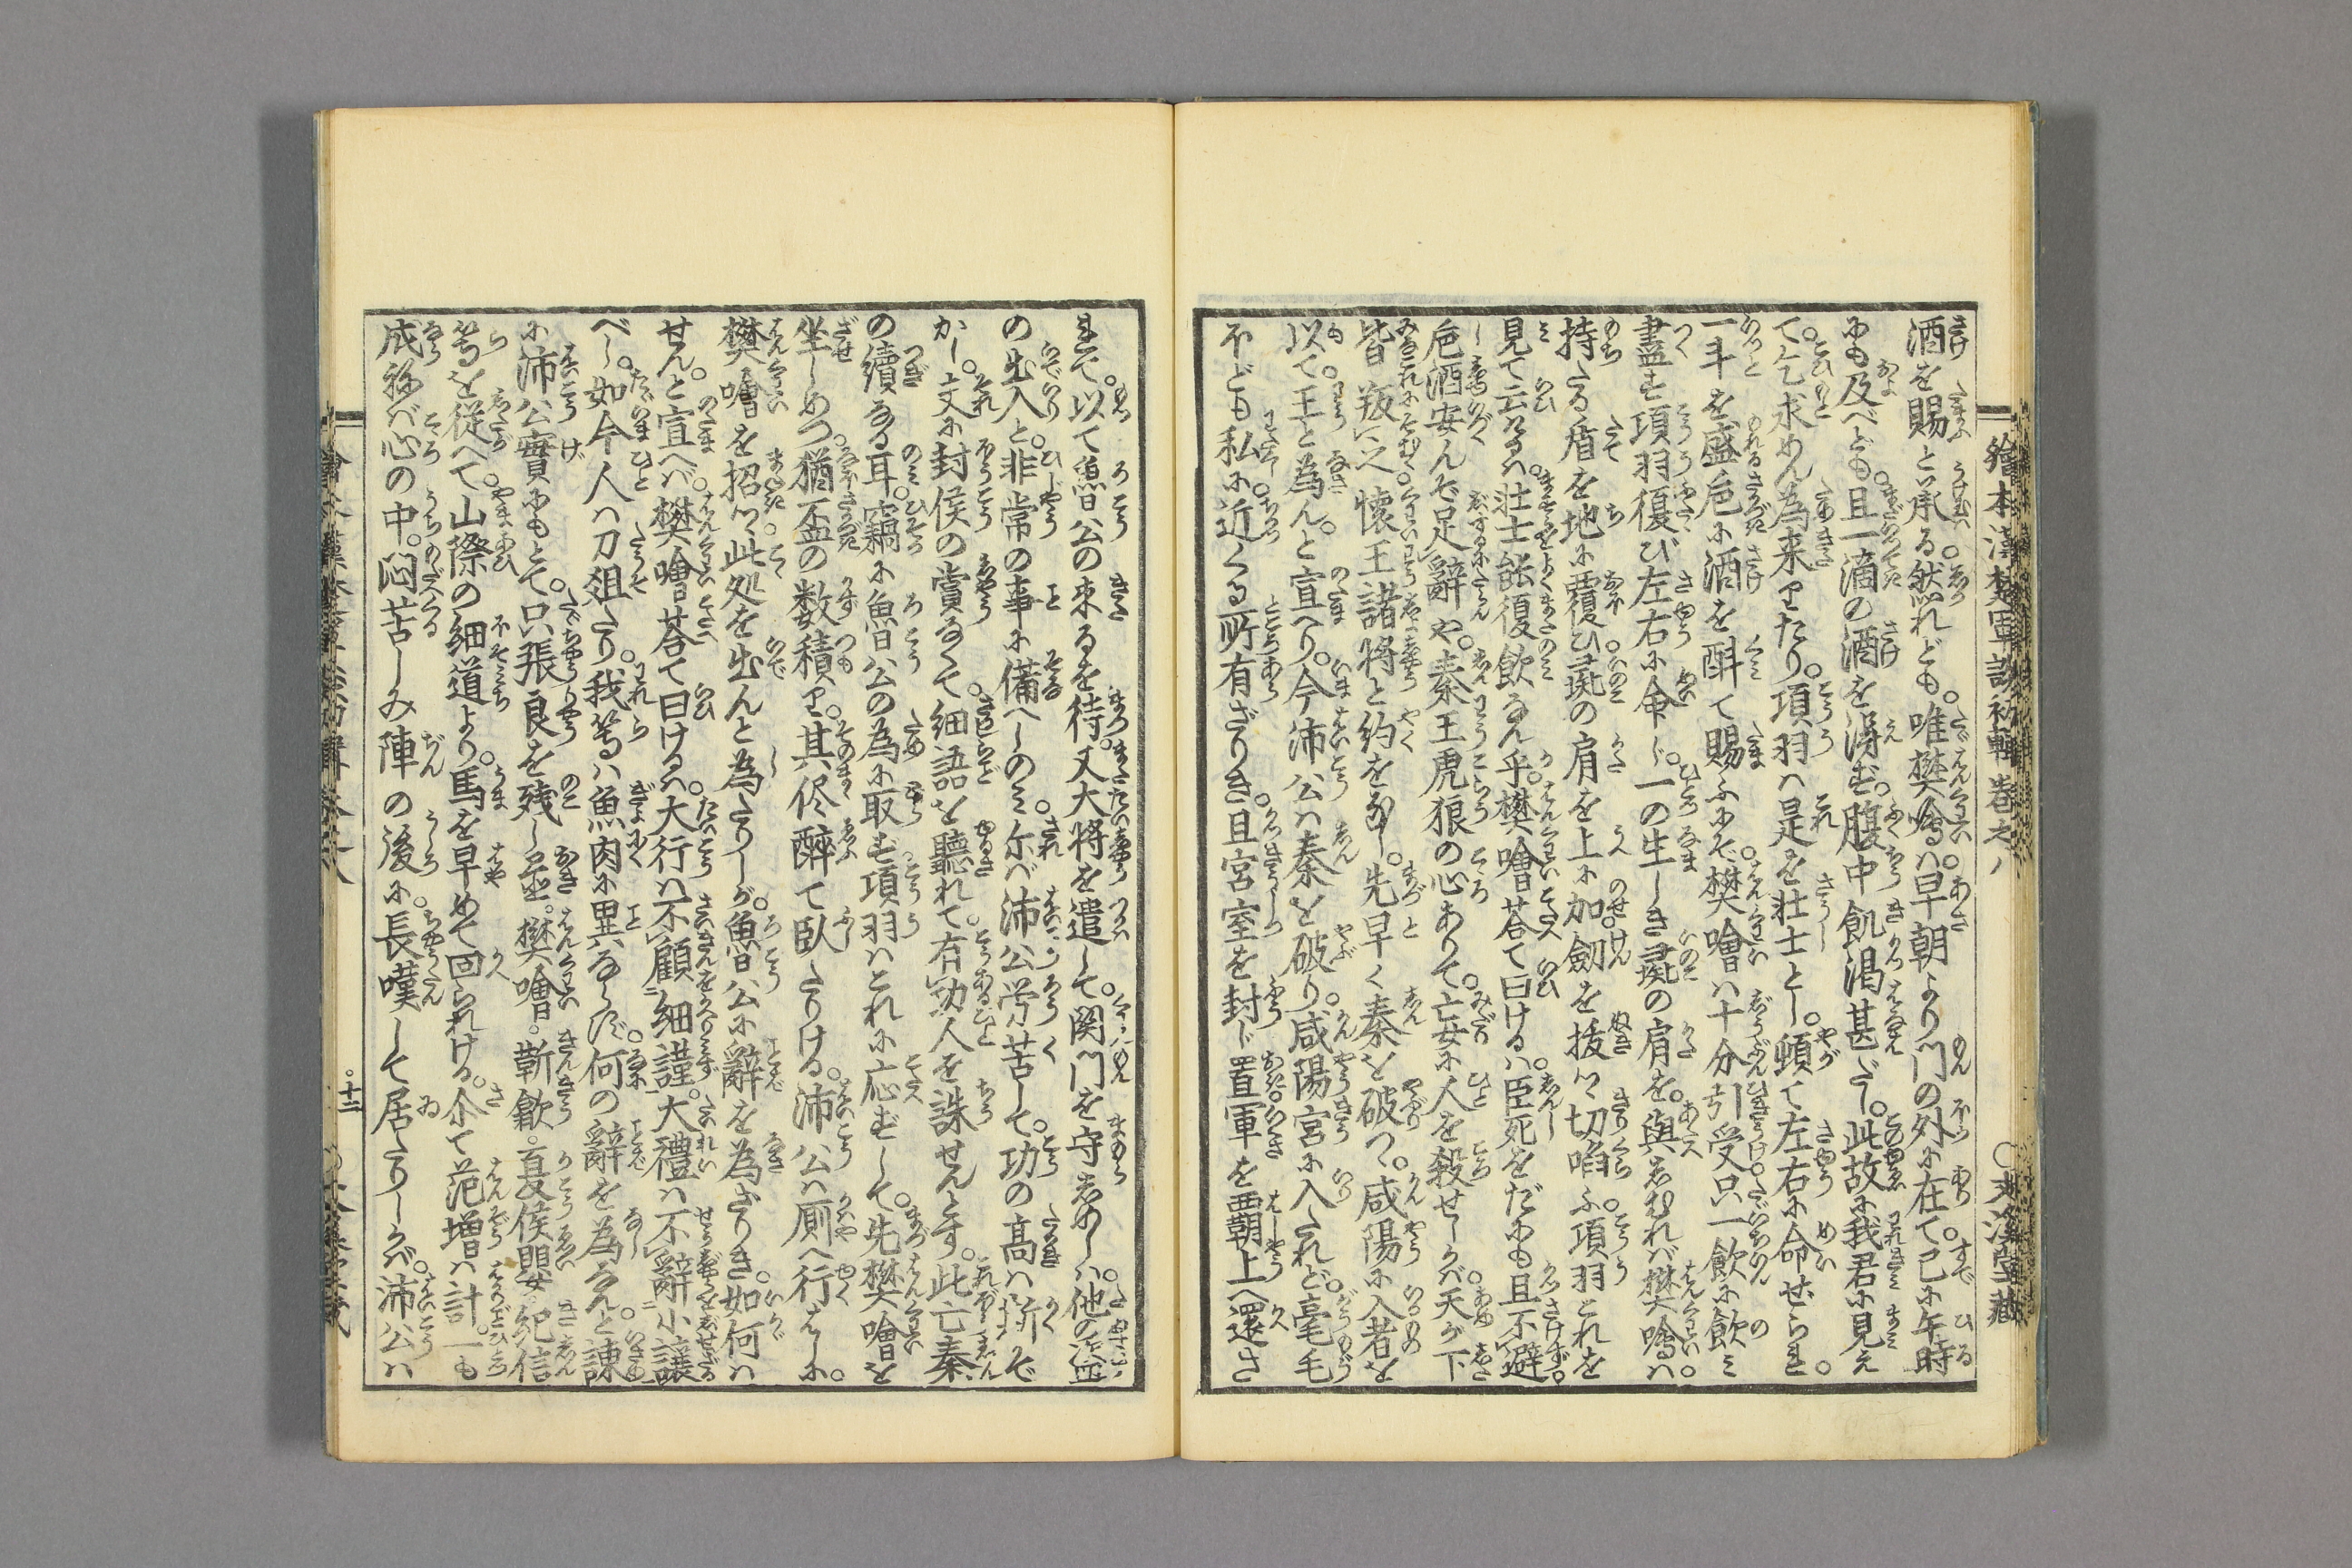 繪本漢楚軍談初輯巻之八　○文溪堂藏
酒を賜と承る。然れども。唯樊噲ハ。早朝より門の外に在て。已に午時
にも及べども。且一滴の酒を得ず。腹中飢渇甚だし。此故に我君に見え
て。乞求めん為来りたり。項羽ハ是を壮士とし。頓て左右に命ぜられ。
一斗を盛巵に酒を酙て賜ふにぞ。樊噲ハ十分引受。只一飲に飲ミ
盡す。項羽復び左右に命じ。一の生しき彘の肩を。與えむれバ。樊噲ハ。
持たる盾を地に覆ひ。彘の肩を上に加。劔を拔て切啗ふ。項羽これを
見て云けるハ。壮士能復飲なん乎。樊噲荅て曰けるハ。臣死をだにも且不避。
巵酒安んぞ足辭や。秦王虎狼の心ありて。妄に人を殺せしかバ。天が下
皆叛之。懐王諸将と約をなし。先早く秦を破つ。咸陽に入者を
以て。王と為ん。と宣へり。今沛公ハ秦を破り。咸陽宮に入たれど。毫毛
ほども私に。近くる所有ざりき。且宮室を封じ置。軍を覇上へ還さ
れて。以て魯公の来るを待。又大将を遣して。関門を守しめしハ。他の盗
の出入と。非常の事に備へしのミ。尓バ沛公労苦して。功の高ハ斯くぞ
かし。文に封侯の賞なくて。細語を聴れて。有功人を誅せんとす。此亡秦
の續なる耳。竊に魯公の為に取ず。項羽ハこれに応ずして。先樊噲を
坐しめつ。猶盃の数積り。其侭醉て臥たりける。沛公ハ厠へ行さしに。
樊噲を招つ。此処を出んと為たりしが。魯公に辭を為ざりき。如何ハ
せん。と宣へバ。樊噲荅て曰けるハ。大行ハ不顧細謹。大禮ハ不辭小讓
べし。如今人ハ刀俎たり。我等ハ魚肉に異ならず。何の辭を為なんと諌
に。沛公實にもとて。只張良を残し置。樊噲。靳歙。夏侯嬰。紀信
等を従へて。山際の細道より。馬を早めて回られける。尒て范増ハ計一も
成ねバ心の中。悶苦しみ陣の後に。長嘆して居たりしかバ。沛公ハ
十二